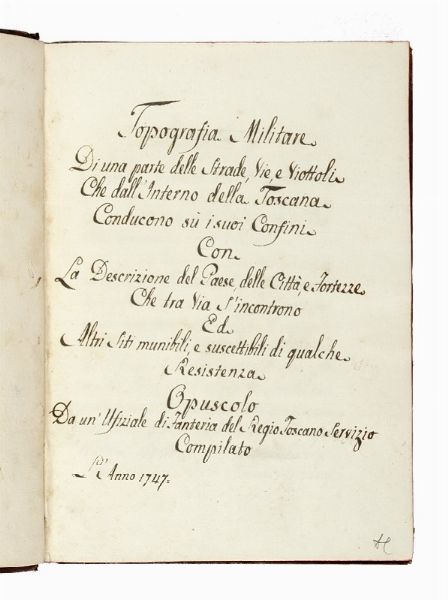 Topografia Militare
Di una parte delle Strade, Vie, e Viottoli
Che dall'Interno della Toscana
Conducono sù i suoi Confini
Con
La Descrizione del Paese, delle Città, e Fortezze
Che tra Via s'incontrono
Ed
Altri Siti munibili, e suscettibili di qualche
Resistenza
Opuscolo
Da un' Ufiziale di Fanteria del Regio Toscano Servizio
Compilato
L' Anno 1747.